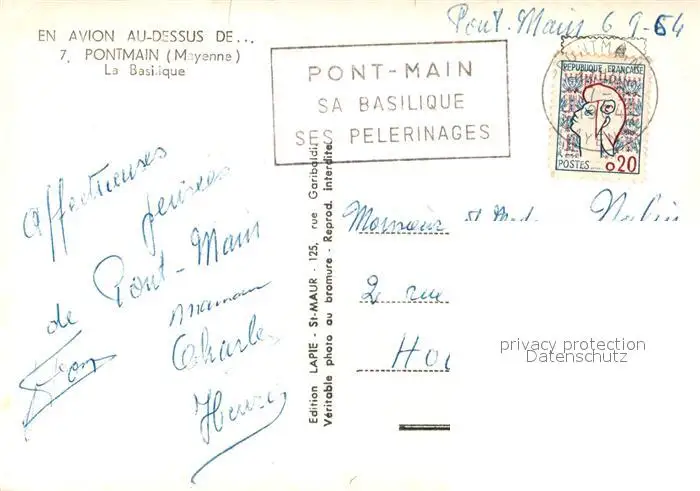 EN AVION AU-DESSUS DE...
7. PONTMAIN (Mayenne)
La Basilique
Pont-Main 6-9-64
PONT-MAIN
SA BASILIQUE
SES PELERINAGES
REPUBLIQUE FRANÇAISE
POSTES 0,20
Affectueuses
pensées
de Pont-Main
maman
Charles
Henri
Edition LAPIE - St-MAUR - 125, rue Garibaldi
Véritable photo au bromure - Reprod. interdite
Monsieur et Mad
2 rue
privacy protection
Datenschutz